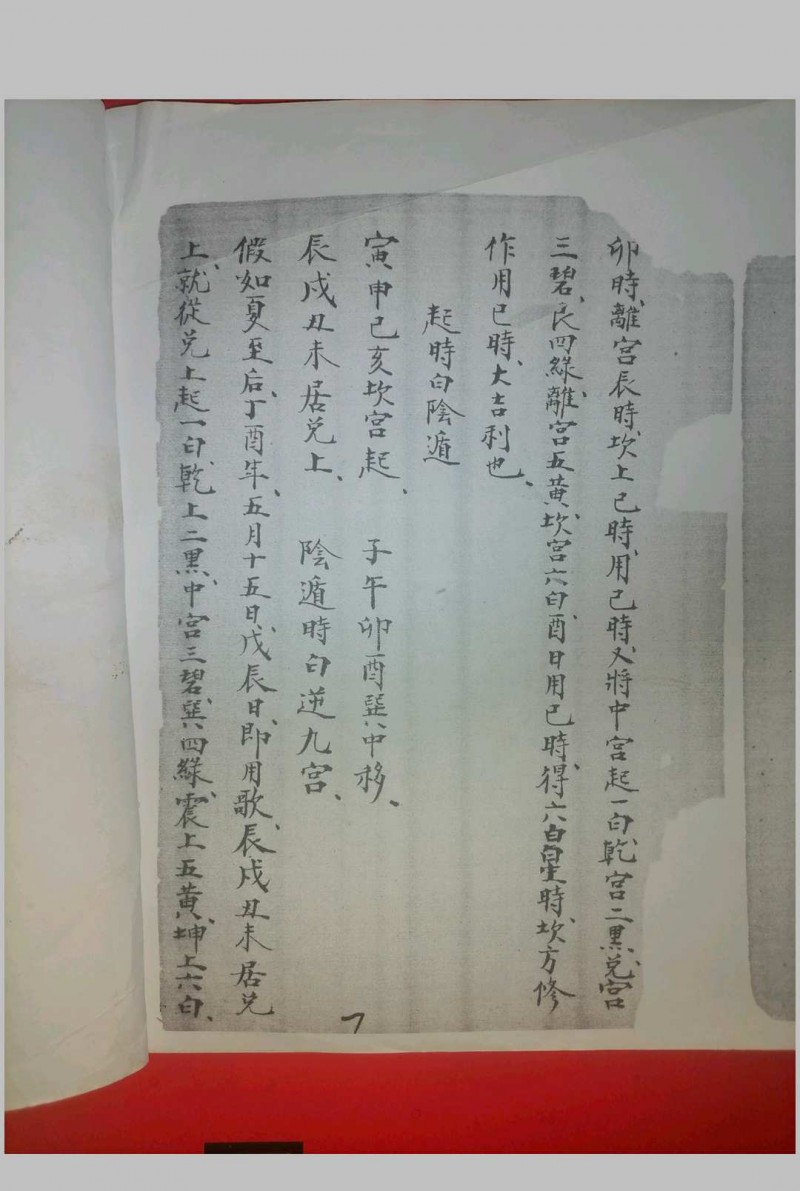 卯時、離宮辰時、坎上巳時、用巳時、又將中宮起一白、乾宮二黑、兑宮
三碧、艮四緑、離宮五黃、坎宮六白、酉日用巳時、得六白星時、坎方修
作用巳時、大吉利也、
起時白陰遁
寅申巳亥坎宮起、 子午卯酉巽中移、
辰戌丑未居兑上、 陰遁時白逆九宮、
假如夏至后、丁酉年、五月十五日、戊辰日、即用歌、辰戌丑未居兑
上、就從兑上起一白、乾上二黑、中宮三碧、巽四緑、震上五黃、坤上六白、
7